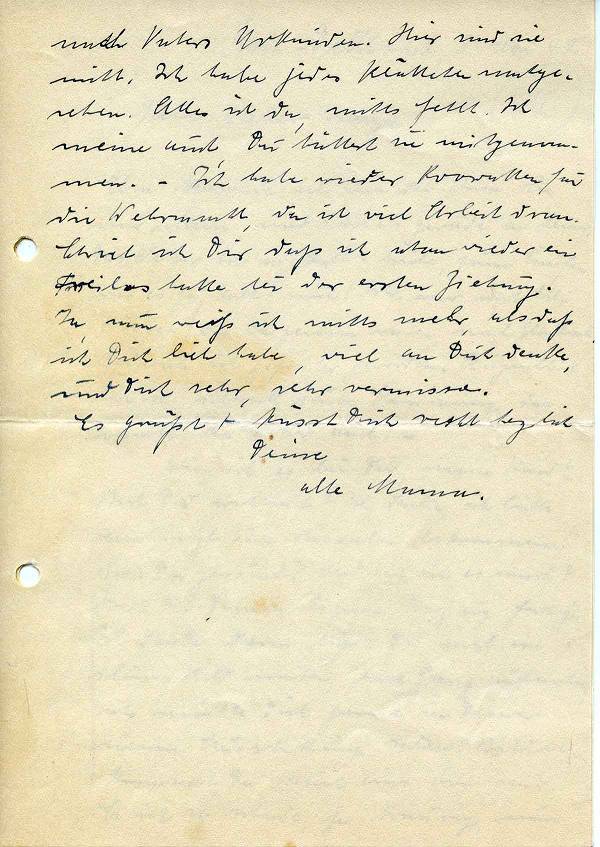 nach Vaters Urkunden. Hier sind sie
nicht. Ich habe jedes Blättchen umge-
sehen. Alles ist da, nichts fehlt. Ich
meine auch Du hättest sie mitgenom-
men. - Ich habe wieder Krawatten für
die Wehrmacht, da ist viel Arbeit dran.
Schrieb ich Dir daß ich wieder ein
Freilos hatte bei der ersten Ziehung.
Ja, nun weiß ich nichts mehr, als daß
ich Dich lieb habe, viel an Dich denke,
und Dich sehr, sehr vermisse.
Es grüßt + küsst Dich recht herzlich
Deine
alte Mama.